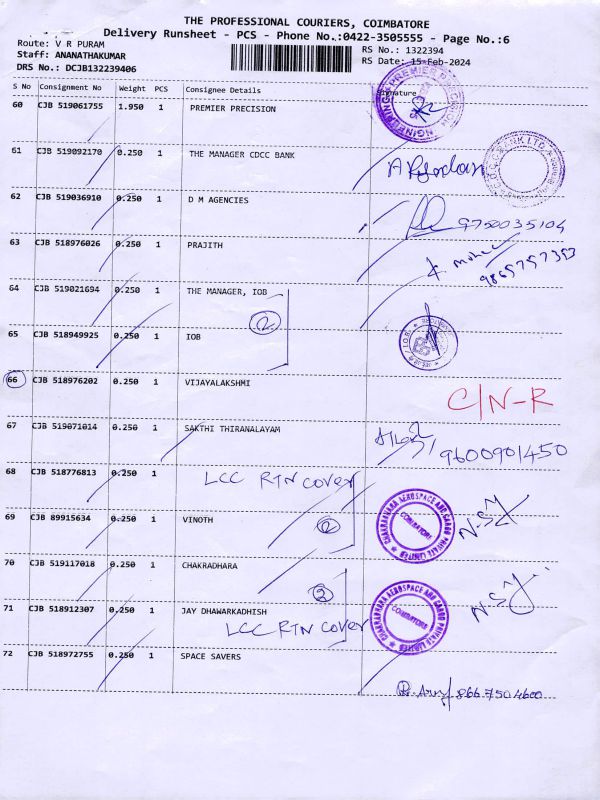 THE PROFESSIONAL COURIERS, COIMBATORE
Delivery Runsheet - PCS - Phone No.:0422-3505555 - Page No.:6
Route: V R PURAM
Staff: ANANATHAKUMAR
DRS No.: DCJB132239406
RS No.: 1322394
RS Date: 15-Feb-2024
S No Consignment No Weight PCS Consignee Details Signature
60 CJB 519061755 1.950 1 PREMIER PRECISION
61 CJB 519092170 0.250 1 THE MANAGER CDCC BANK
62 CJB 519036910 0.250 1 D M AGENCIES
9750035104
63 CJB 518976026 0.250 1 PRAJITH
9865757353
64 CJB 519021694 0.250 1 THE MANAGER, IOB
2
65 CJB 518949925 0.250 1 IOB
66 CJB 518976202 0.250 1 VIJAYALAKSHMI
C/N-R
67 CJB 519071014 0.250 1 SAKTHI THIRANALAYAM
9600901450
68 CJB 518776813 0.250 1 LCC RTN cover
69 CJB 89915634 0.250 1 VINOTH
2
CHAKRADHARA AEROSPACE AND CARGO PRIVATE LIMITED
COIMBATORE
70 CJB 519117018 0.250 1 CHAKRADHARA
71 CJB 518912307 0.250 1 JAY DHAWARKADHISH
LCC RTN cover
CHAKRADHARA AEROSPACE AND CARGO PRIVATE LIMITED
COIMBATORE
72 CJB 518972755 0.250 1 SPACE SAVERS
8667504600